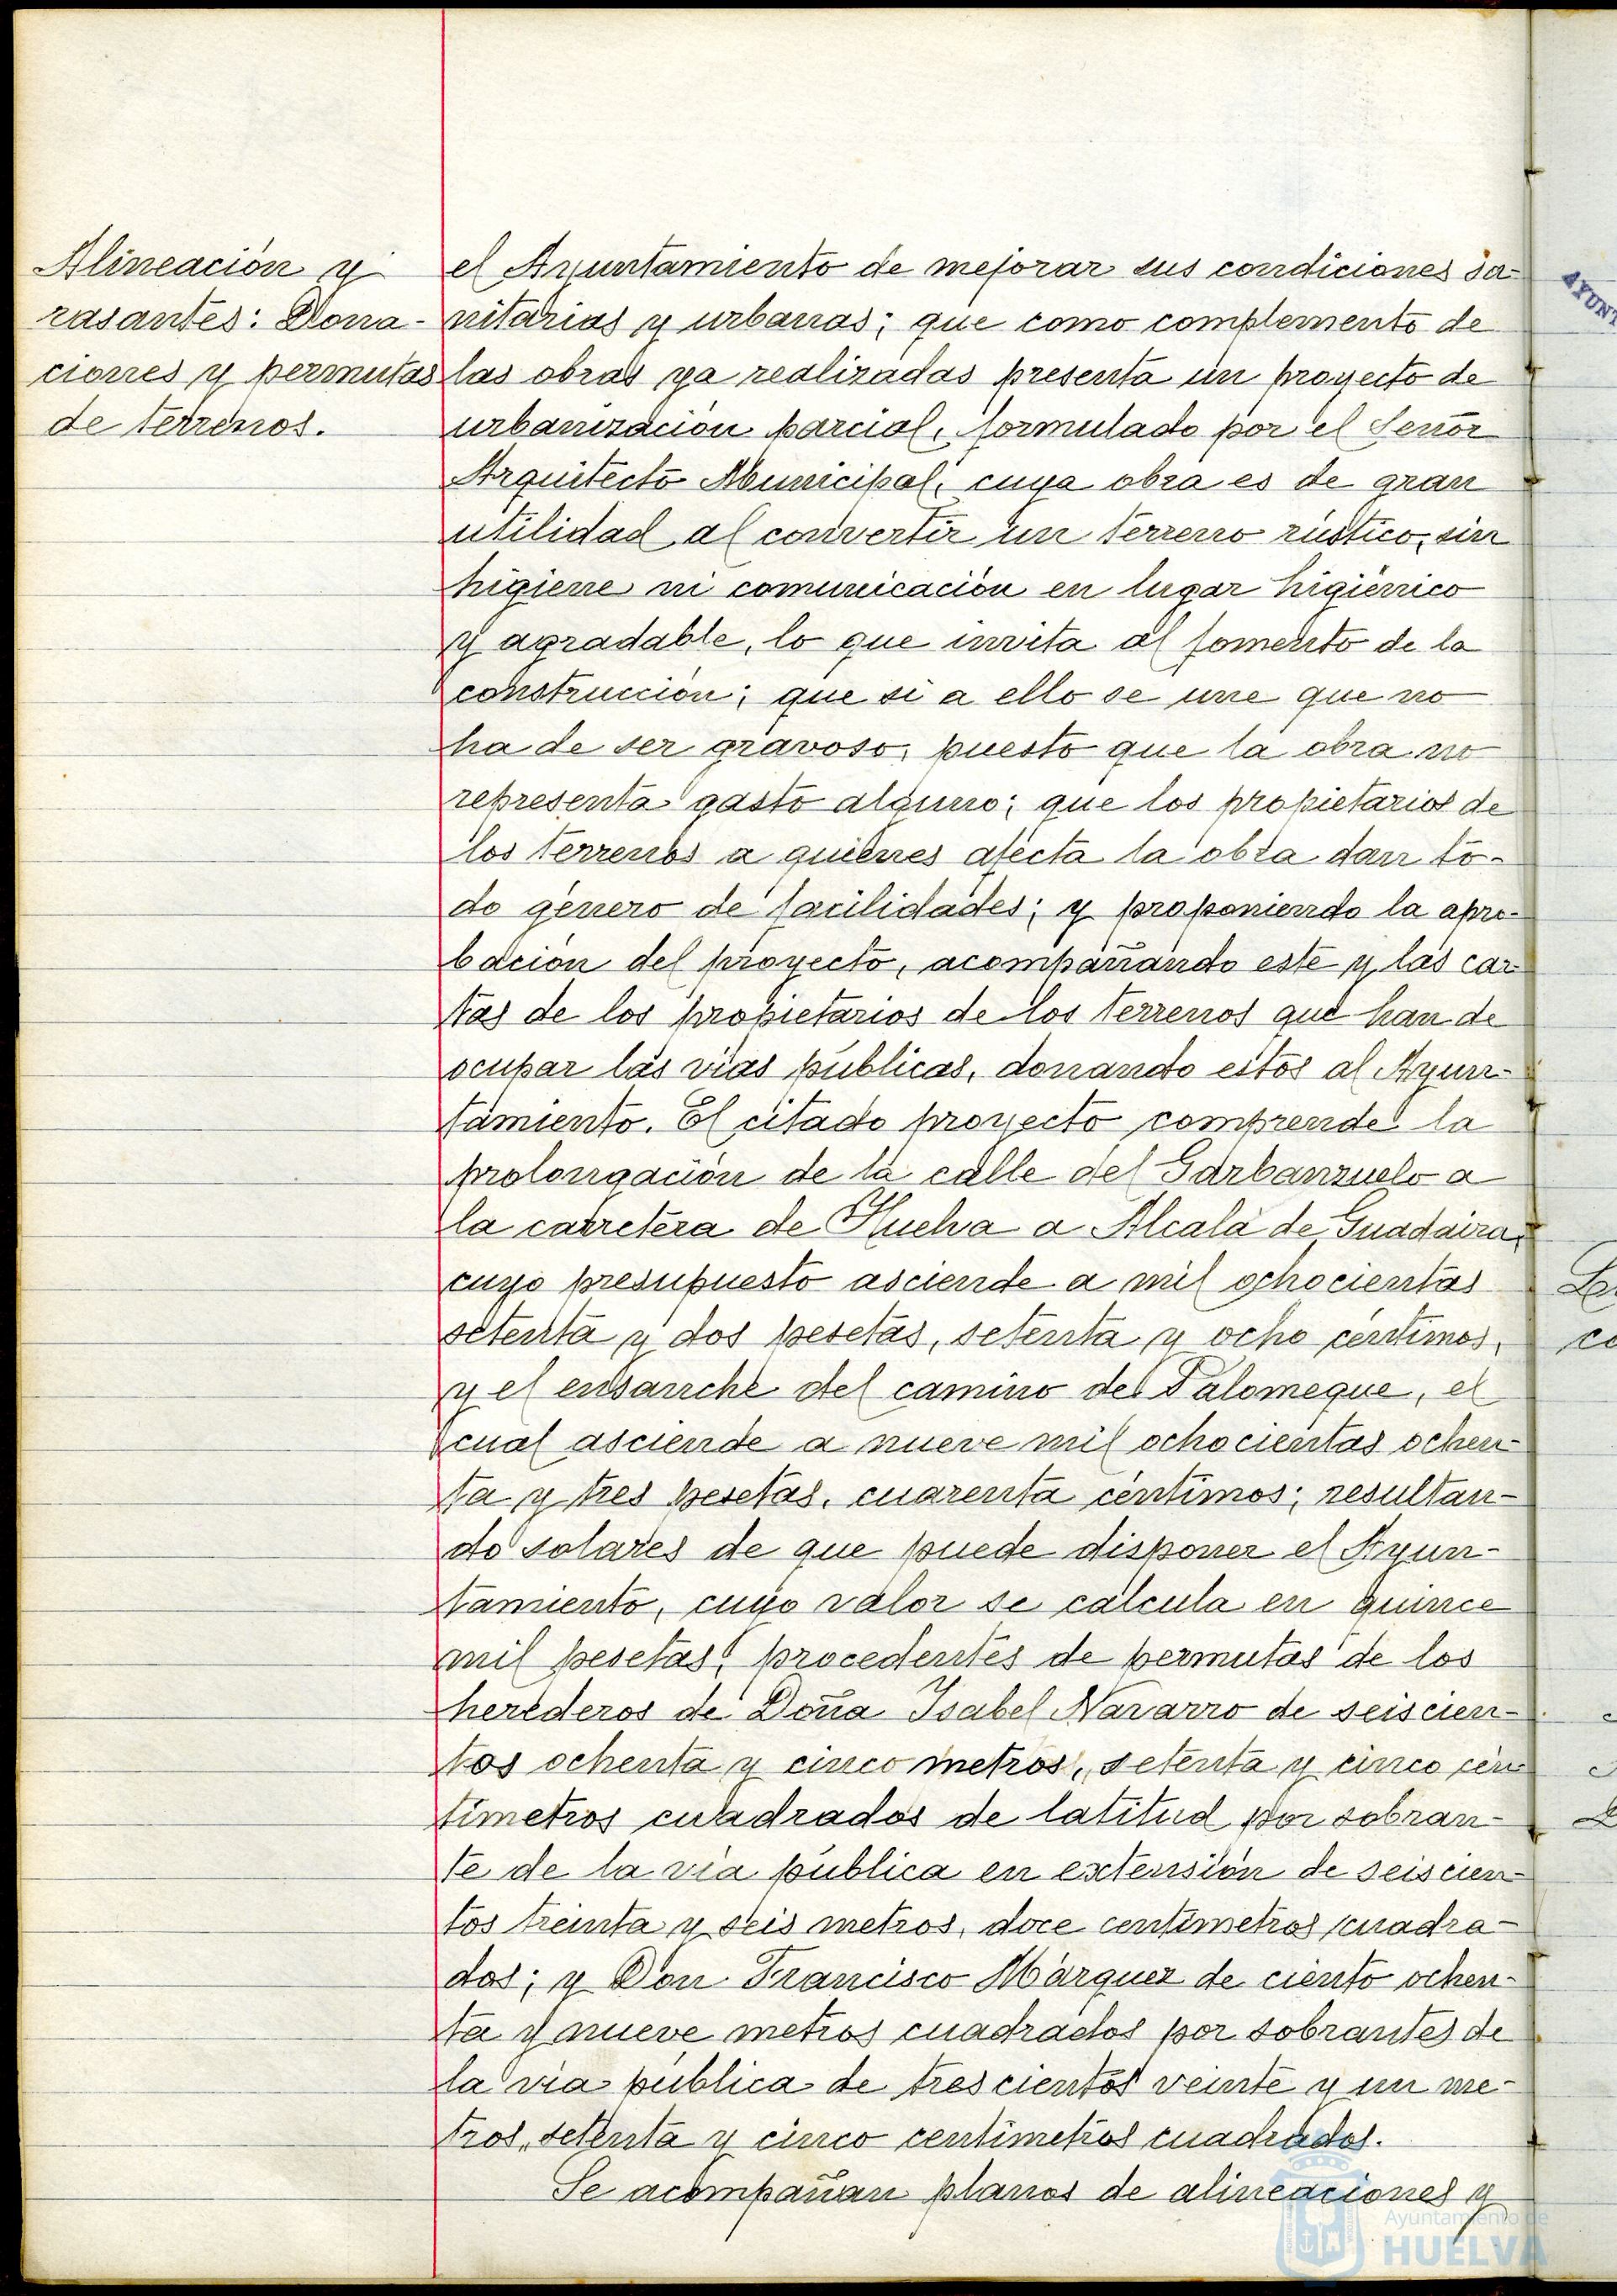 Alineación y
rasantes: Dona-
ciones y permutas
de terrenos.
el Ayuntamiento de mejorar sus condiciones sa-
nitarias y urbanas; que como complemento de
las obras ya realizadas presenta un proyecto de
urbanización parcial, formulado por el Señor
Arquitecto Municipal, cuya obra es de gran
utilidad al convertir un terreno rústico, sin
higiene ni comunicación en lugar higiénico
y agradable, lo que invita al fomento de la
construcción; que si a ello se une que no
ha de ser gravoso, puesto que la obra no
representa gasto alguno; que los propietarios de
los terrenos a quienes afecta la obra dan to-
do género de facilidades; y proponiendo la apro-
bación del proyecto, acompañando este y las car-
tas de los propietarios de los terrenos que han de
ocupar las vías públicas, donando estos al Ayun-
tamiento. El citado proyecto comprende la
prolongación de la calle del Garbanzuelo a
la carretera de Huelva a Alcalá de Guadaira,
cuyo presupuesto asciende a mil ochocientas
setenta y dos pesetas, setenta y ocho céntimos,
y el ensanche del camino del Palomeque, el
cual asciende a nueve mil ochocientas ochen-
ta y tres pesetas, cuarenta céntimos; resultan-
do solares de que puede disponer el Ayun-
tamiento, cuyo valor se calcula en quince
mil pesetas, procedentes de permutas de los
herederos de Doña Isabel Navarro de seiscien-
tos ochenta y cinco metros, setenta y cinco cen-
tímetros cuadrados de latitud por sobran-
te de la vía pública en extensión de seiscien-
tos treinta y seis metros, doce centímetros cuadra-
dos; y Don Francisco Márquez de ciento ochen-
ta y nueve metros cuadrados por sobrantes de
la vía pública de trescientos veinte y un me-
tros, setenta y cinco centímetros cuadrados.
Se acompañan planos de alineaciones y
Ayuntamiento de
HUELVA
AYUNT